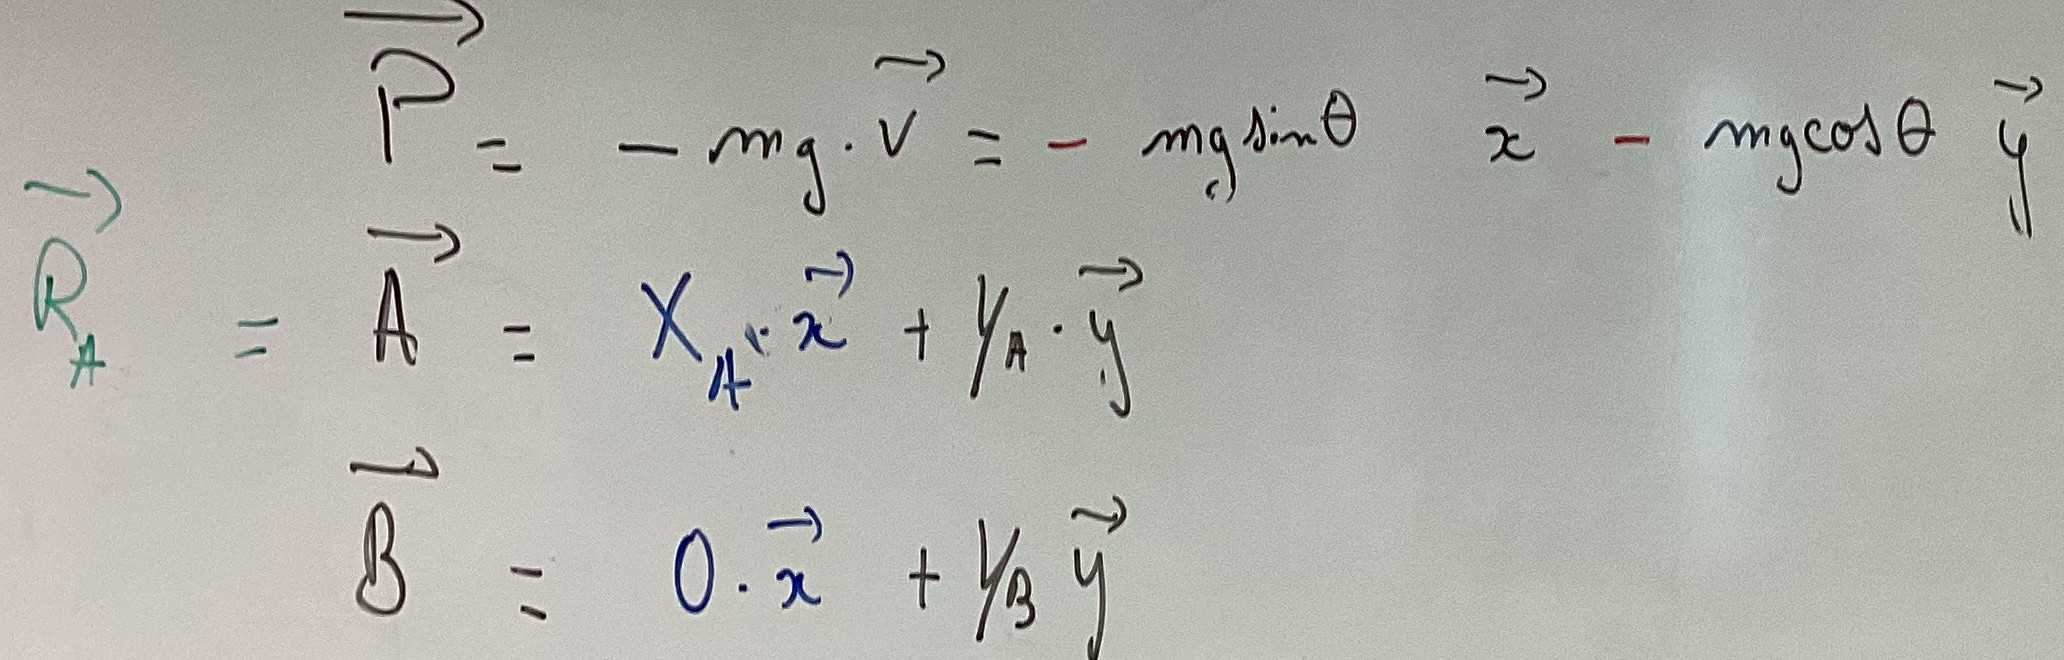 $\overrightarrow{P} = -mg \cdot \overrightarrow{v} = -mg \sin\theta \quad \overrightarrow{x} - mg\cos\theta \, \overrightarrow{y}$
$\overrightarrow{R}_A = \overrightarrow{A} = X_A \cdot \overrightarrow{x} + Y_A \cdot \overrightarrow{y}$
$\overrightarrow{B} = 0 \cdot \overrightarrow{x} + Y_B \, \overrightarrow{y}$